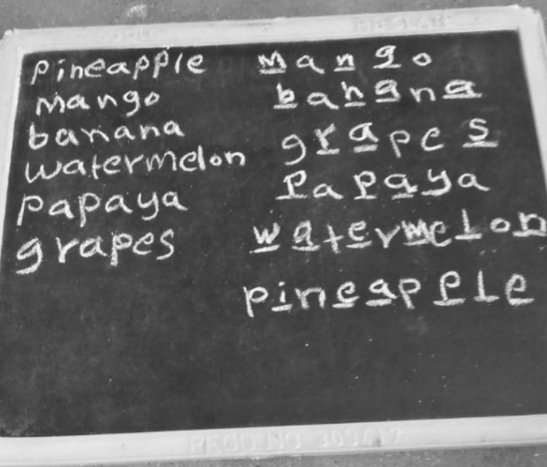 pineapple mango
mango banana
banana grapes
watermelon papaya
papaya watermelon
grapes pineapple